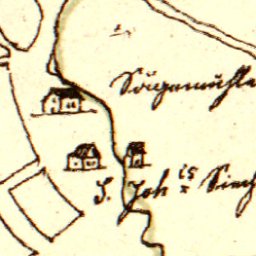 Sägemühle
S. Joh is
x Siech